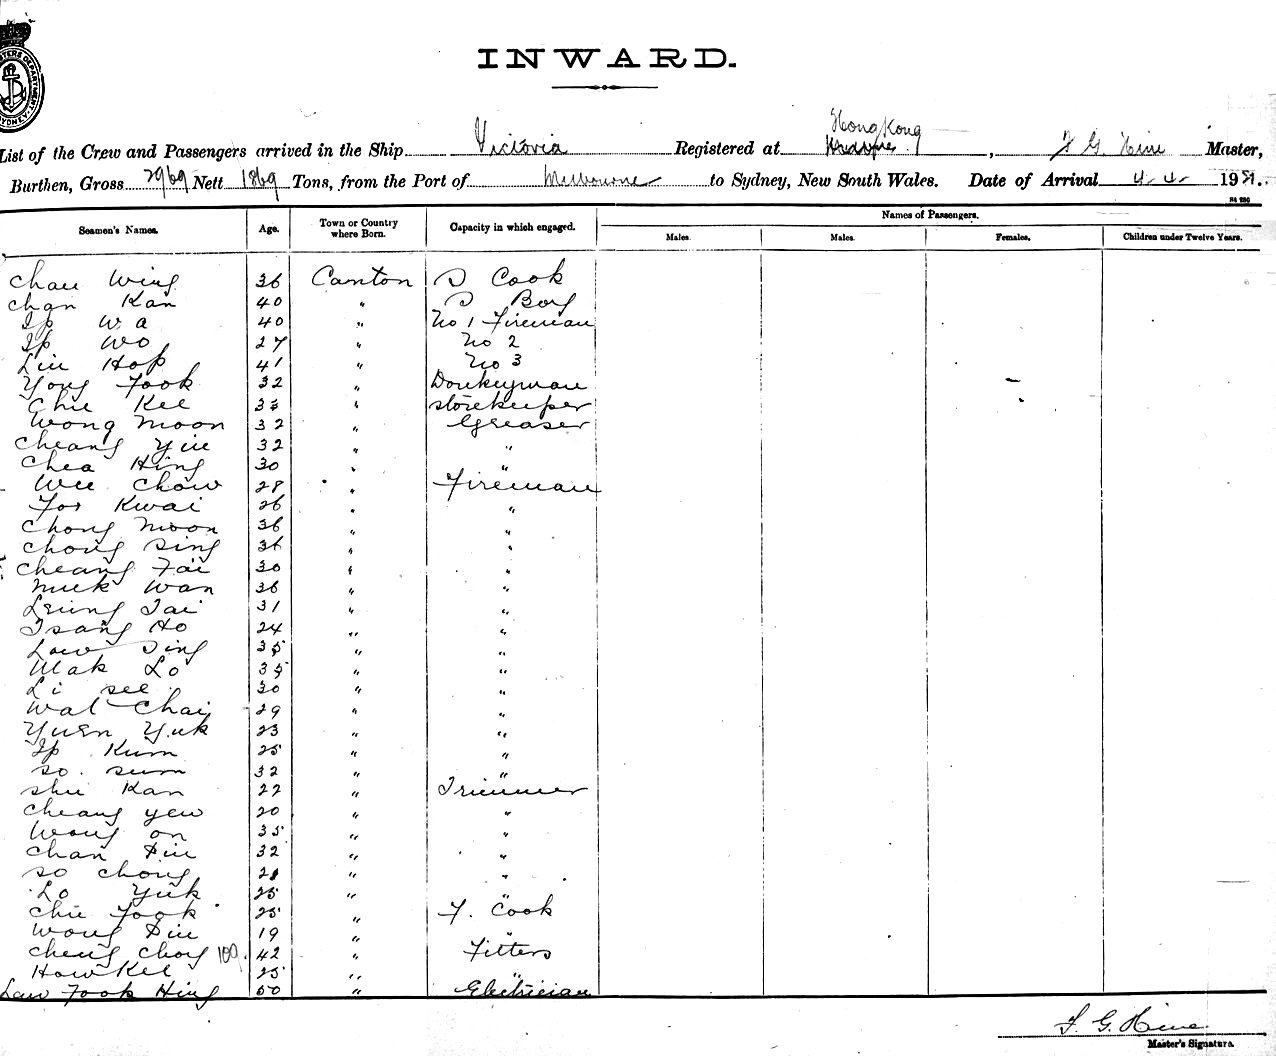 INWARD.
Hong Kong
List of the Crew and Passengers arrived in the Ship Victoria Registered at , F G Hine Master,
Burthen, Gross 2969 Nett 1869 Tons, from the Port of Melbourne to Sydney, New South Wales. Date of Arrival 4-4- 19
Names of Passengers.
Seamen's Names. Age. Town or Country where Born. Capacity in which engaged. Males. Males. Females. Children under Twelve Years.
Chau Wing 36 Canton S Cook
Chan Kan 40 " S Boy
Ip Wa 40 " No 1 Fireman
Ip Wo 27 " No 2
Liu Hop 41 " No 3
Yong Fook 32 " Donkeyman
Chu Kee 33 " Storekeeper
Wong Moon 32 " Greaser
Cheang Yiu 32 " "
Chea Hing 30 " "
Wee Chow 28 " Fireman
Foo Kwai 26 " "
Chong Moon 36 " "
Chong Sing 36 " "
Cheang Fai 30 " "
Muck Wan 36 " "
Leung Tai 31 " "
Tsang Ho 24 " "
Low Sing 35 " "
Mak Lo 35 " "
Li See 30 " "
Wat Chai 29 " "
Yuen Yuk 23 " "
Ip Kum 25 " "
So Sum 32 " "
Shu Kan 22 " Trimmer
Cheang Yew 20 " "
Wong On 35 " "
Chan Siu 32 " "
So Chong 21 " "
Lo Yuk 25 " "
Chu Fook 25 " F. Cook
Wong Siu 19 " "
Cheng Choy 42 " Fitters
How Kee 25 " "
Law Fook Hing 50 " Electrician
F. G. Hine
Master's Signature.